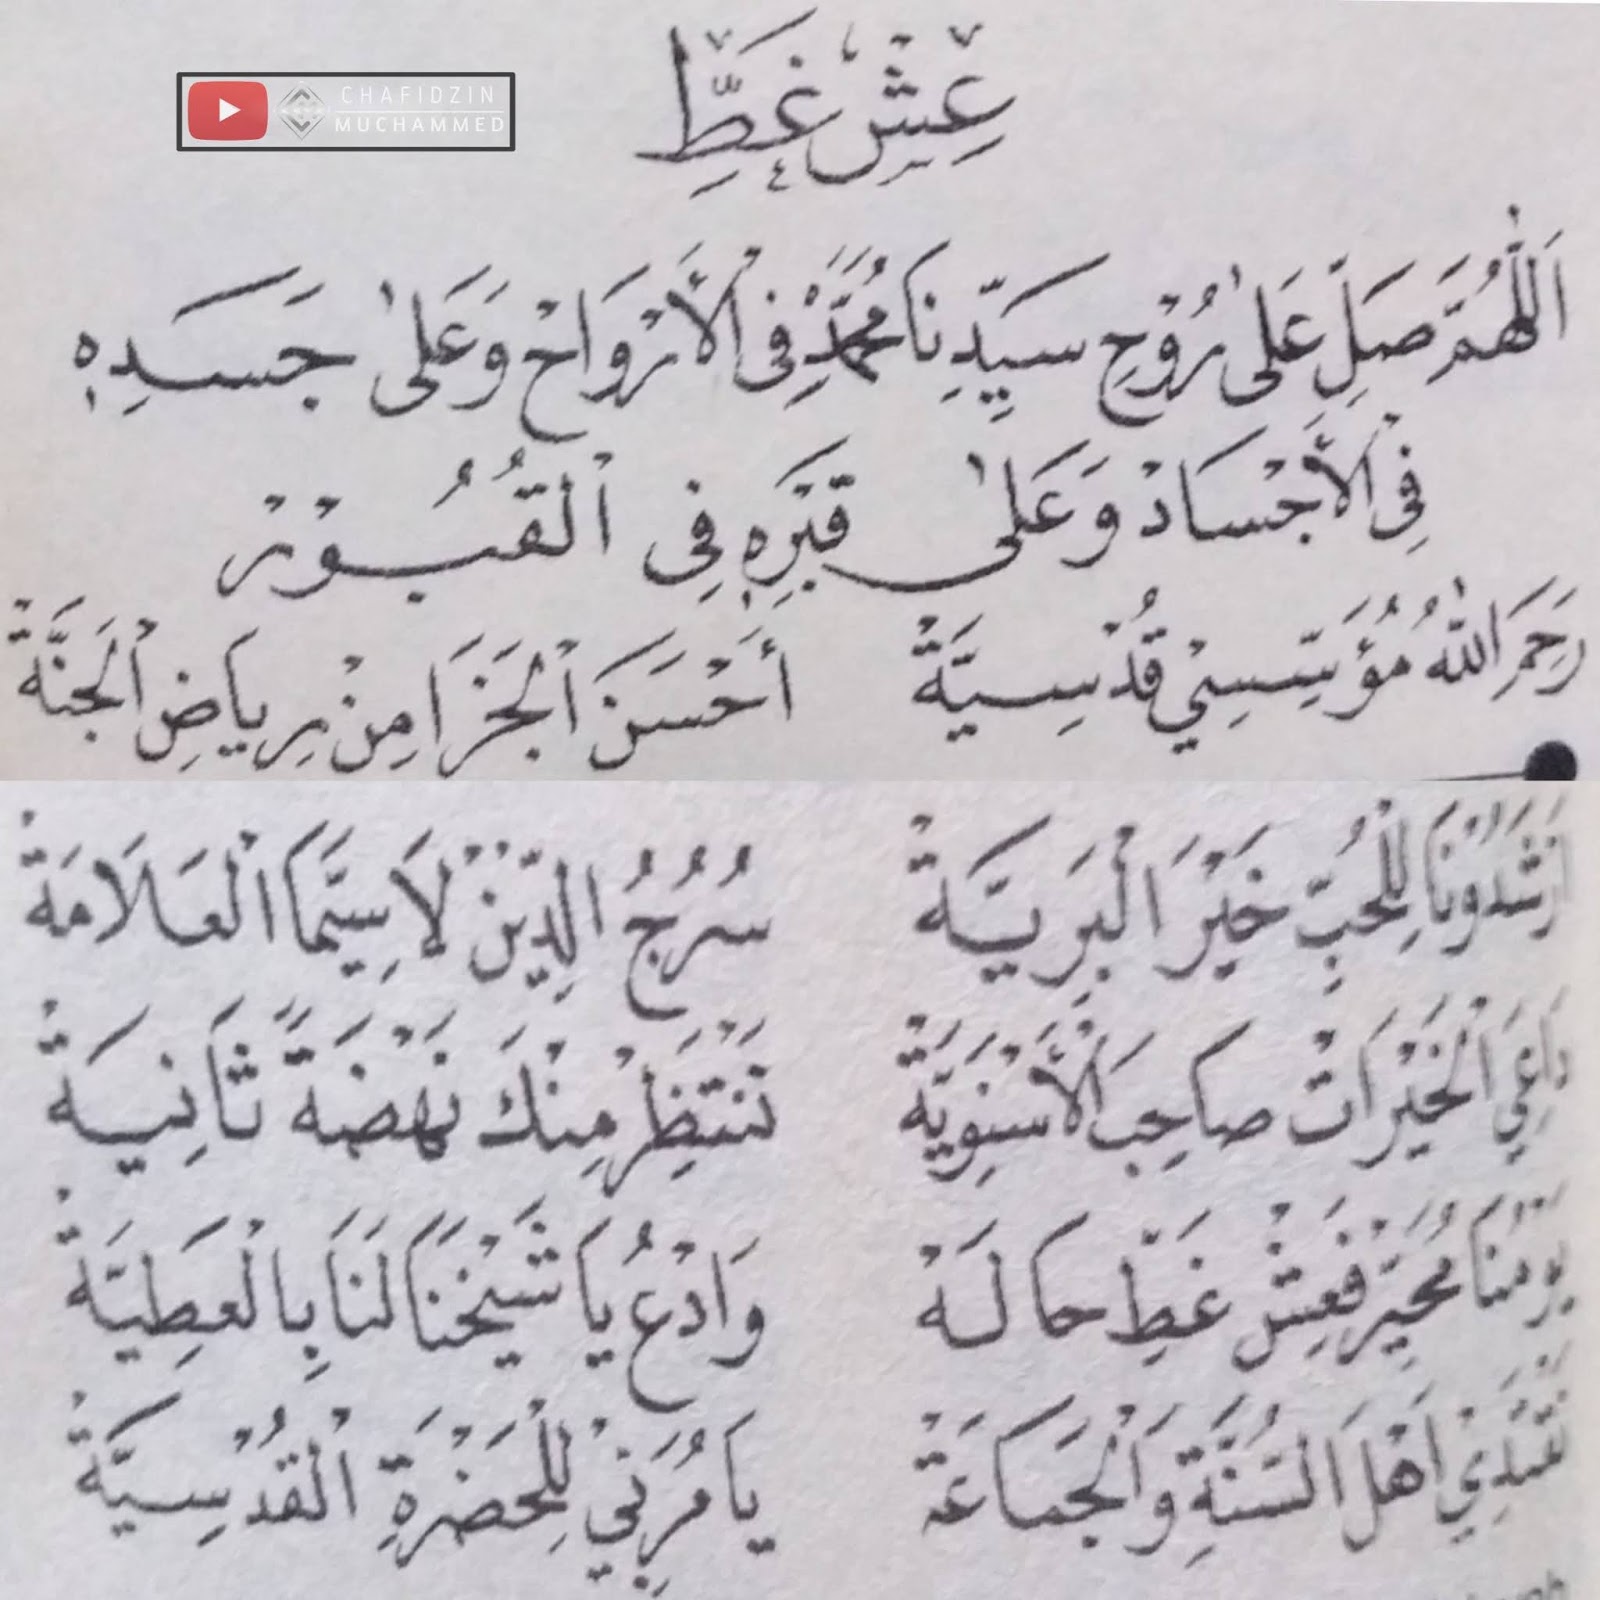 CHAFIDZIN
MUCHAMMED
عِشْ غَطِّ
اَللّٰهُمَّ صَلِّ عَلٰى رُوْحِ سَيِّدِنَا مُحَمَّدٍ فِى الْأَرْوَاحْ وَعَلٰى جَسَدِهٖ
فِى الْأَجْسَادْ وَعَلٰى قَبْرِهٖ فِى الْقُبُوْرْ
رَحِمَ اللّٰهُ مُؤَسِّسِيْ قُدْسِيَّةْ أَحْسَنَ الْجَزَا مِنْ رِيَاضِ الْجَنَّةْ
اَرْشَدُوْنَا لِلْحُبِّ خَيْرَ الْبَرِيَّةْ سُرُجُ الدِّيْنْ لَاسِيَّمَا الْعَلَامَةْ
دَاعِيَ الْخَيْرَاتْ صَاحِبَ الْأَسْنَوِيَّةْ نَنْتَظِرْ مِنْكَ نَهْضَةً ثَانِيَةْ
يَوْمُنَا مُحَيِّرْ فَعِشْ غَطِّ حَالَهْ وَادْعُ يَا شَيْخَنَا لَنَا بِالْعَطِيَّةْ
نَقْتَدِيْ اَهْلَ السُّنَّةِ وَالْجَمَاعَةْ يَا مُرَبِّيْ لِلْحَضْرَةِ الْقُدْسِيَّةْ